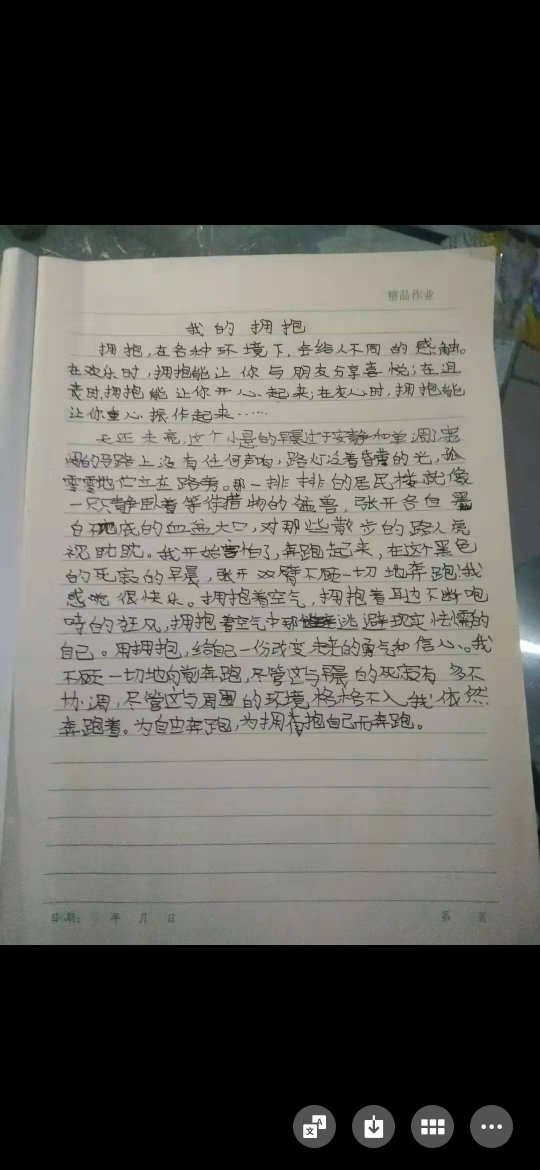 精品作业
我的拥抱
拥抱,在各种环境下,会给人不同的感触。
在欢乐时,拥抱能让你与朋友分享喜悦;在沮
丧时,拥抱能让你开心起来;在灰心时,拥抱能
让你重心振作起来……
天还未亮,这个小县的早晨过于安静和单调,宽
阔的马路上没有任何声响,路灯泛着昏黄的光,孤
零零地伫立在路旁。那一排排的居民楼就像
一只静卧着等待猎物的猛兽,张开各自
的血盆大口,对那些散步的路人虎
视眈眈。我开始害怕了,奔跑起来,在这个黑色
的死寂的早晨,张开双臂不顾一切地奔跑。我
感觉很快乐。拥抱着空气,拥抱着耳边不断咆
哮的狂风,拥抱着空气中那逃避现实怯懦的
自己。用拥抱,给自己一份改变未来的勇气和信心。我
不顾一切地向前奔跑,尽管这与早晨的死寂有多不
协调,尽管这与周围的环境格格不入,我依然
奔跑着。为自由奔跑,为拥抱自己而奔跑。
日期: 年 月 日
第 页